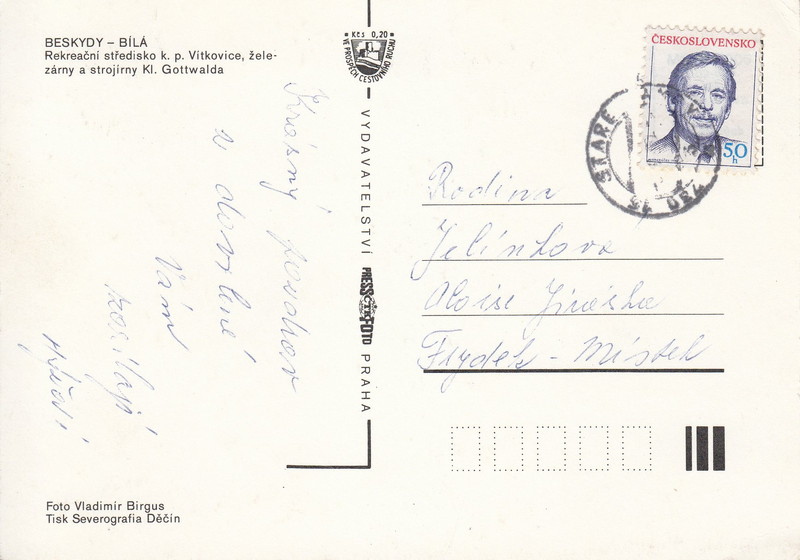 BESKYDY – BÍLÁ
Rekreační středisko k. p. Vítkovice, žele-
zárny a strojírny Kl. Gottwalda
Kčs 0,20
VE PROSPĚCH CESTOVNÍHO RUCHU
VYDAVATELSTVÍ PRESSFOTO PRAHA
ČTK
ČESKOSLOVENSKO
50 h
STARÉ
Krásný pozdrav
z dovolené
Vám
posílají
Rodina
Jelínkova
Aloise Jiráska
Frýdek - Místek
Foto Vladimír Birgus
Tisk Severografia Děčín